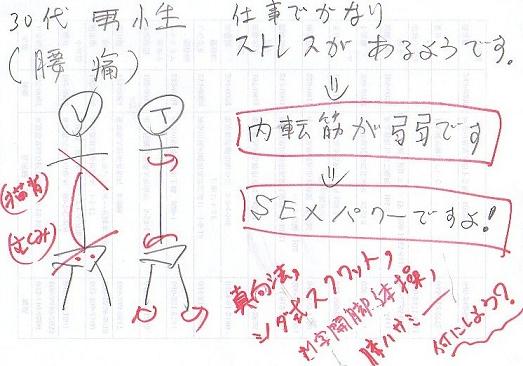 30代 男性
(腰痛)
仕事でかなり
ストレスがあるようです。
⇓
内転筋が弱弱です
⇓
SEXパワーですよ!
V
T
(猫背)
真向法,
シダ式スクワット,
M字開脚体操,
膝ハサミー
何にしよう?